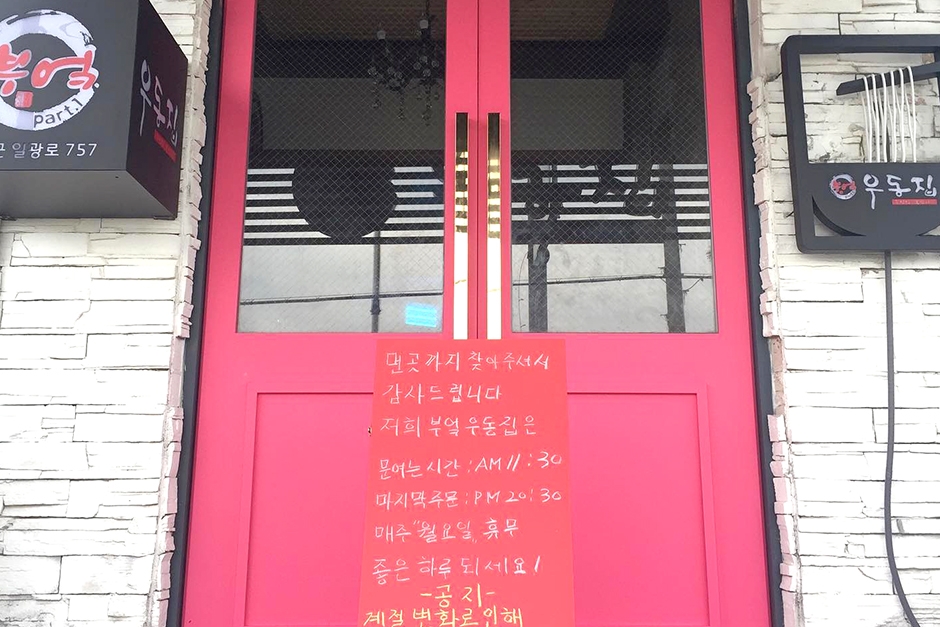 부엌
part.1
군 일광로 757
우동집
우동집
먼곳까지 찾아주셔서
감사드립니다
저희 부엌우동집은
문여는시간 : AM 11 : 30
마지막주문 : PM 20 : 30
매주 "월요일, 휴무
좋은 하루 되세요!
-공지-
계절 변화로 인해